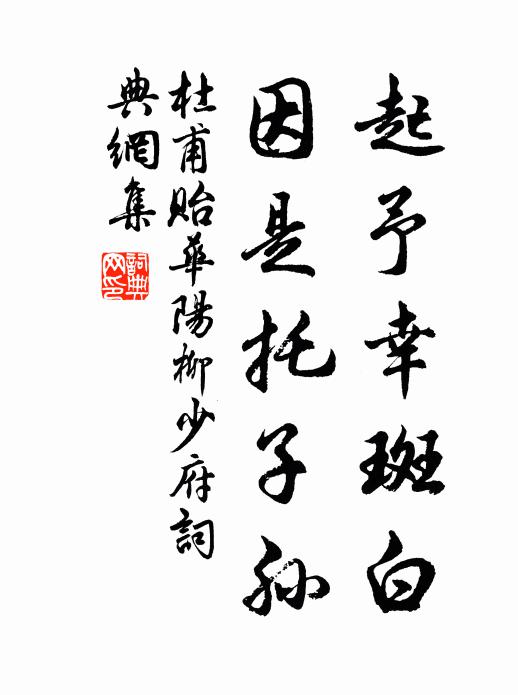 起予幸斑白
因是托子孙
杜甫貽華陽柳少府詞
典網集
詞典
网印